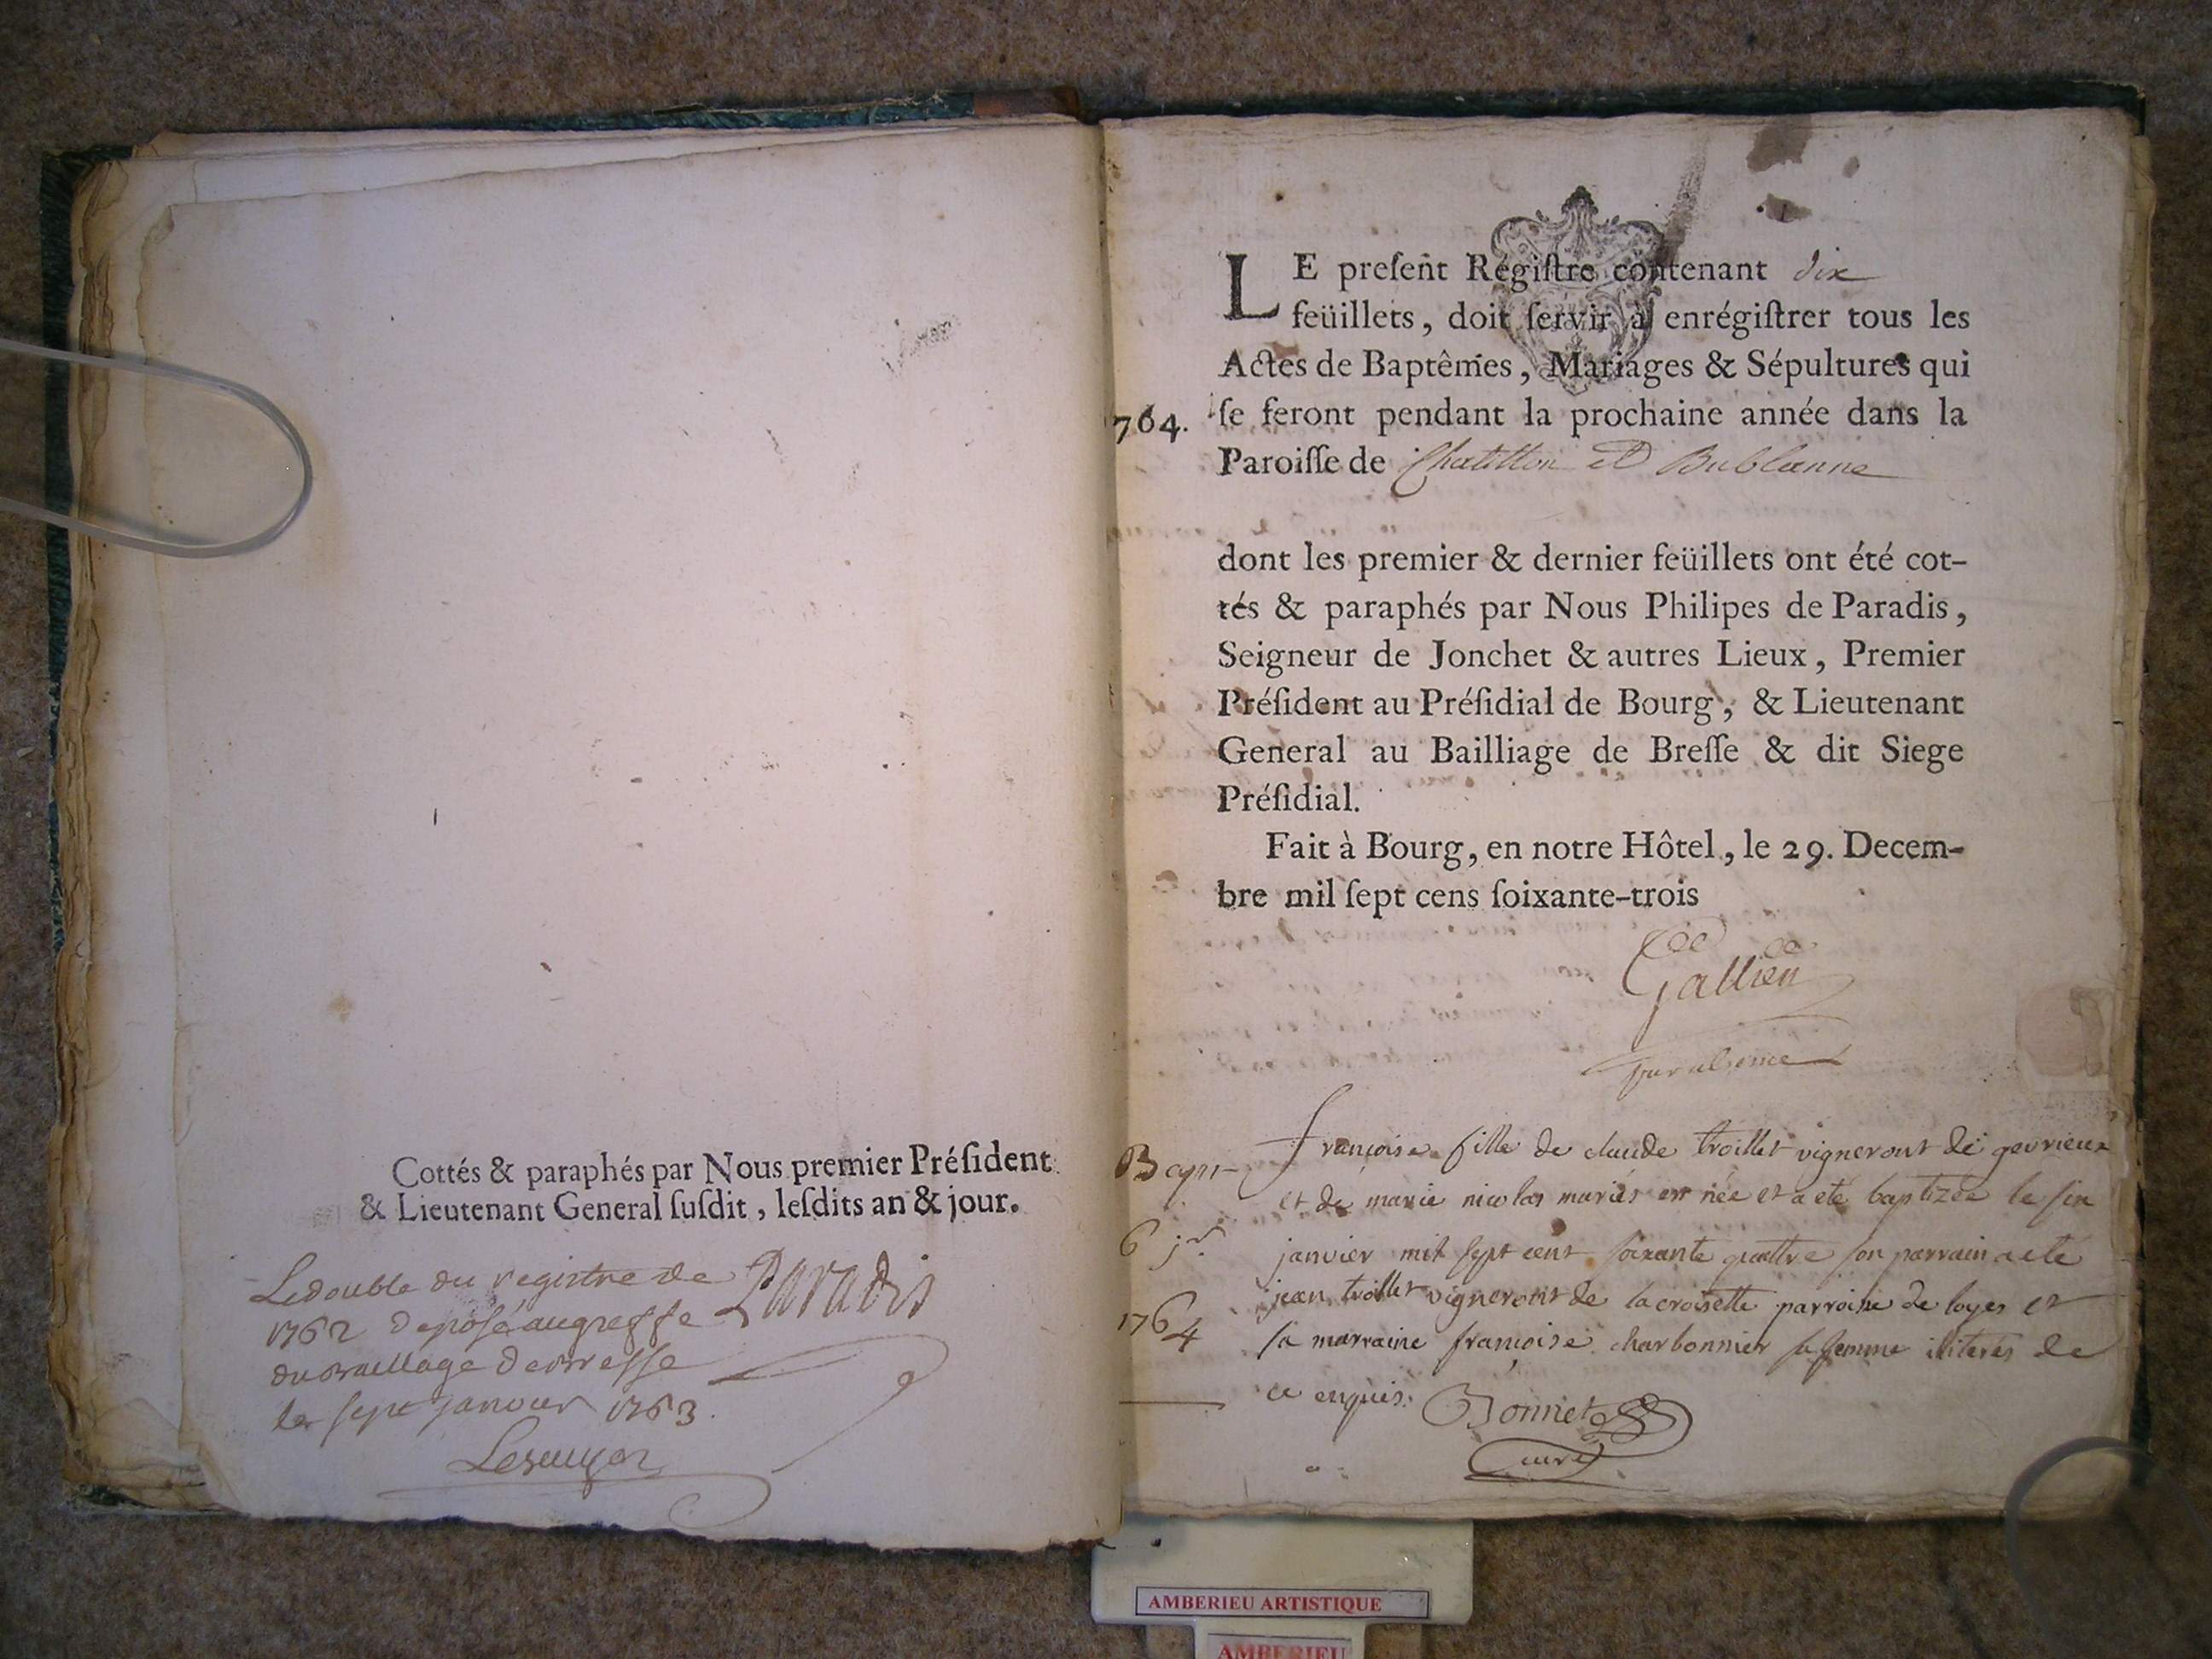 Cottés & paraphés par Nous premier Préſident
& Lieutenant General ſuſdit, leſdits an & jour.
Paradis
Ledouble du registre de
1762 deposé augreffe
du Baillage de Bresse
le sept janvier 1763.
LE preſent Régiſtre contenant dix
feüillets, doit ſervir à enrégiſtrer tous les
Actes de Baptêmes, Mariages & Sépultures qui
764. ſe feront pendant la prochaine année dans la
Paroiſſe de Chatillon et Bublanne
dont les premier & dernier feüillets ont été cot-
tés & paraphés par Nous Philipes de Paradis,
Seigneur de Jonchet & autres Lieux, Premier
Préſident au Préſidial de Bourg, & Lieutenant
General au Bailliage de Breſſe & dit Siege
Préſidial.
Fait à Bourg, en notre Hôtel, le 29. Decem-
bre mil ſept cens ſoixante-trois
Gallien
Bapt
6 jr.
1764
françoise fille de claude troillet vigneront de gevrieux
et de marie nicolas mariés est née et a eté baptizée le six
janvier mil sept cent soixante quattre son parrain a eté
jean troillet vigneront de lacroisette parroisse de loyes et
sa marraine françoise charbonnier sa femme iliterés de
ce enquis. Bonnet
curé
AMBERIEU ARTISTIQUE
AMBERIEU